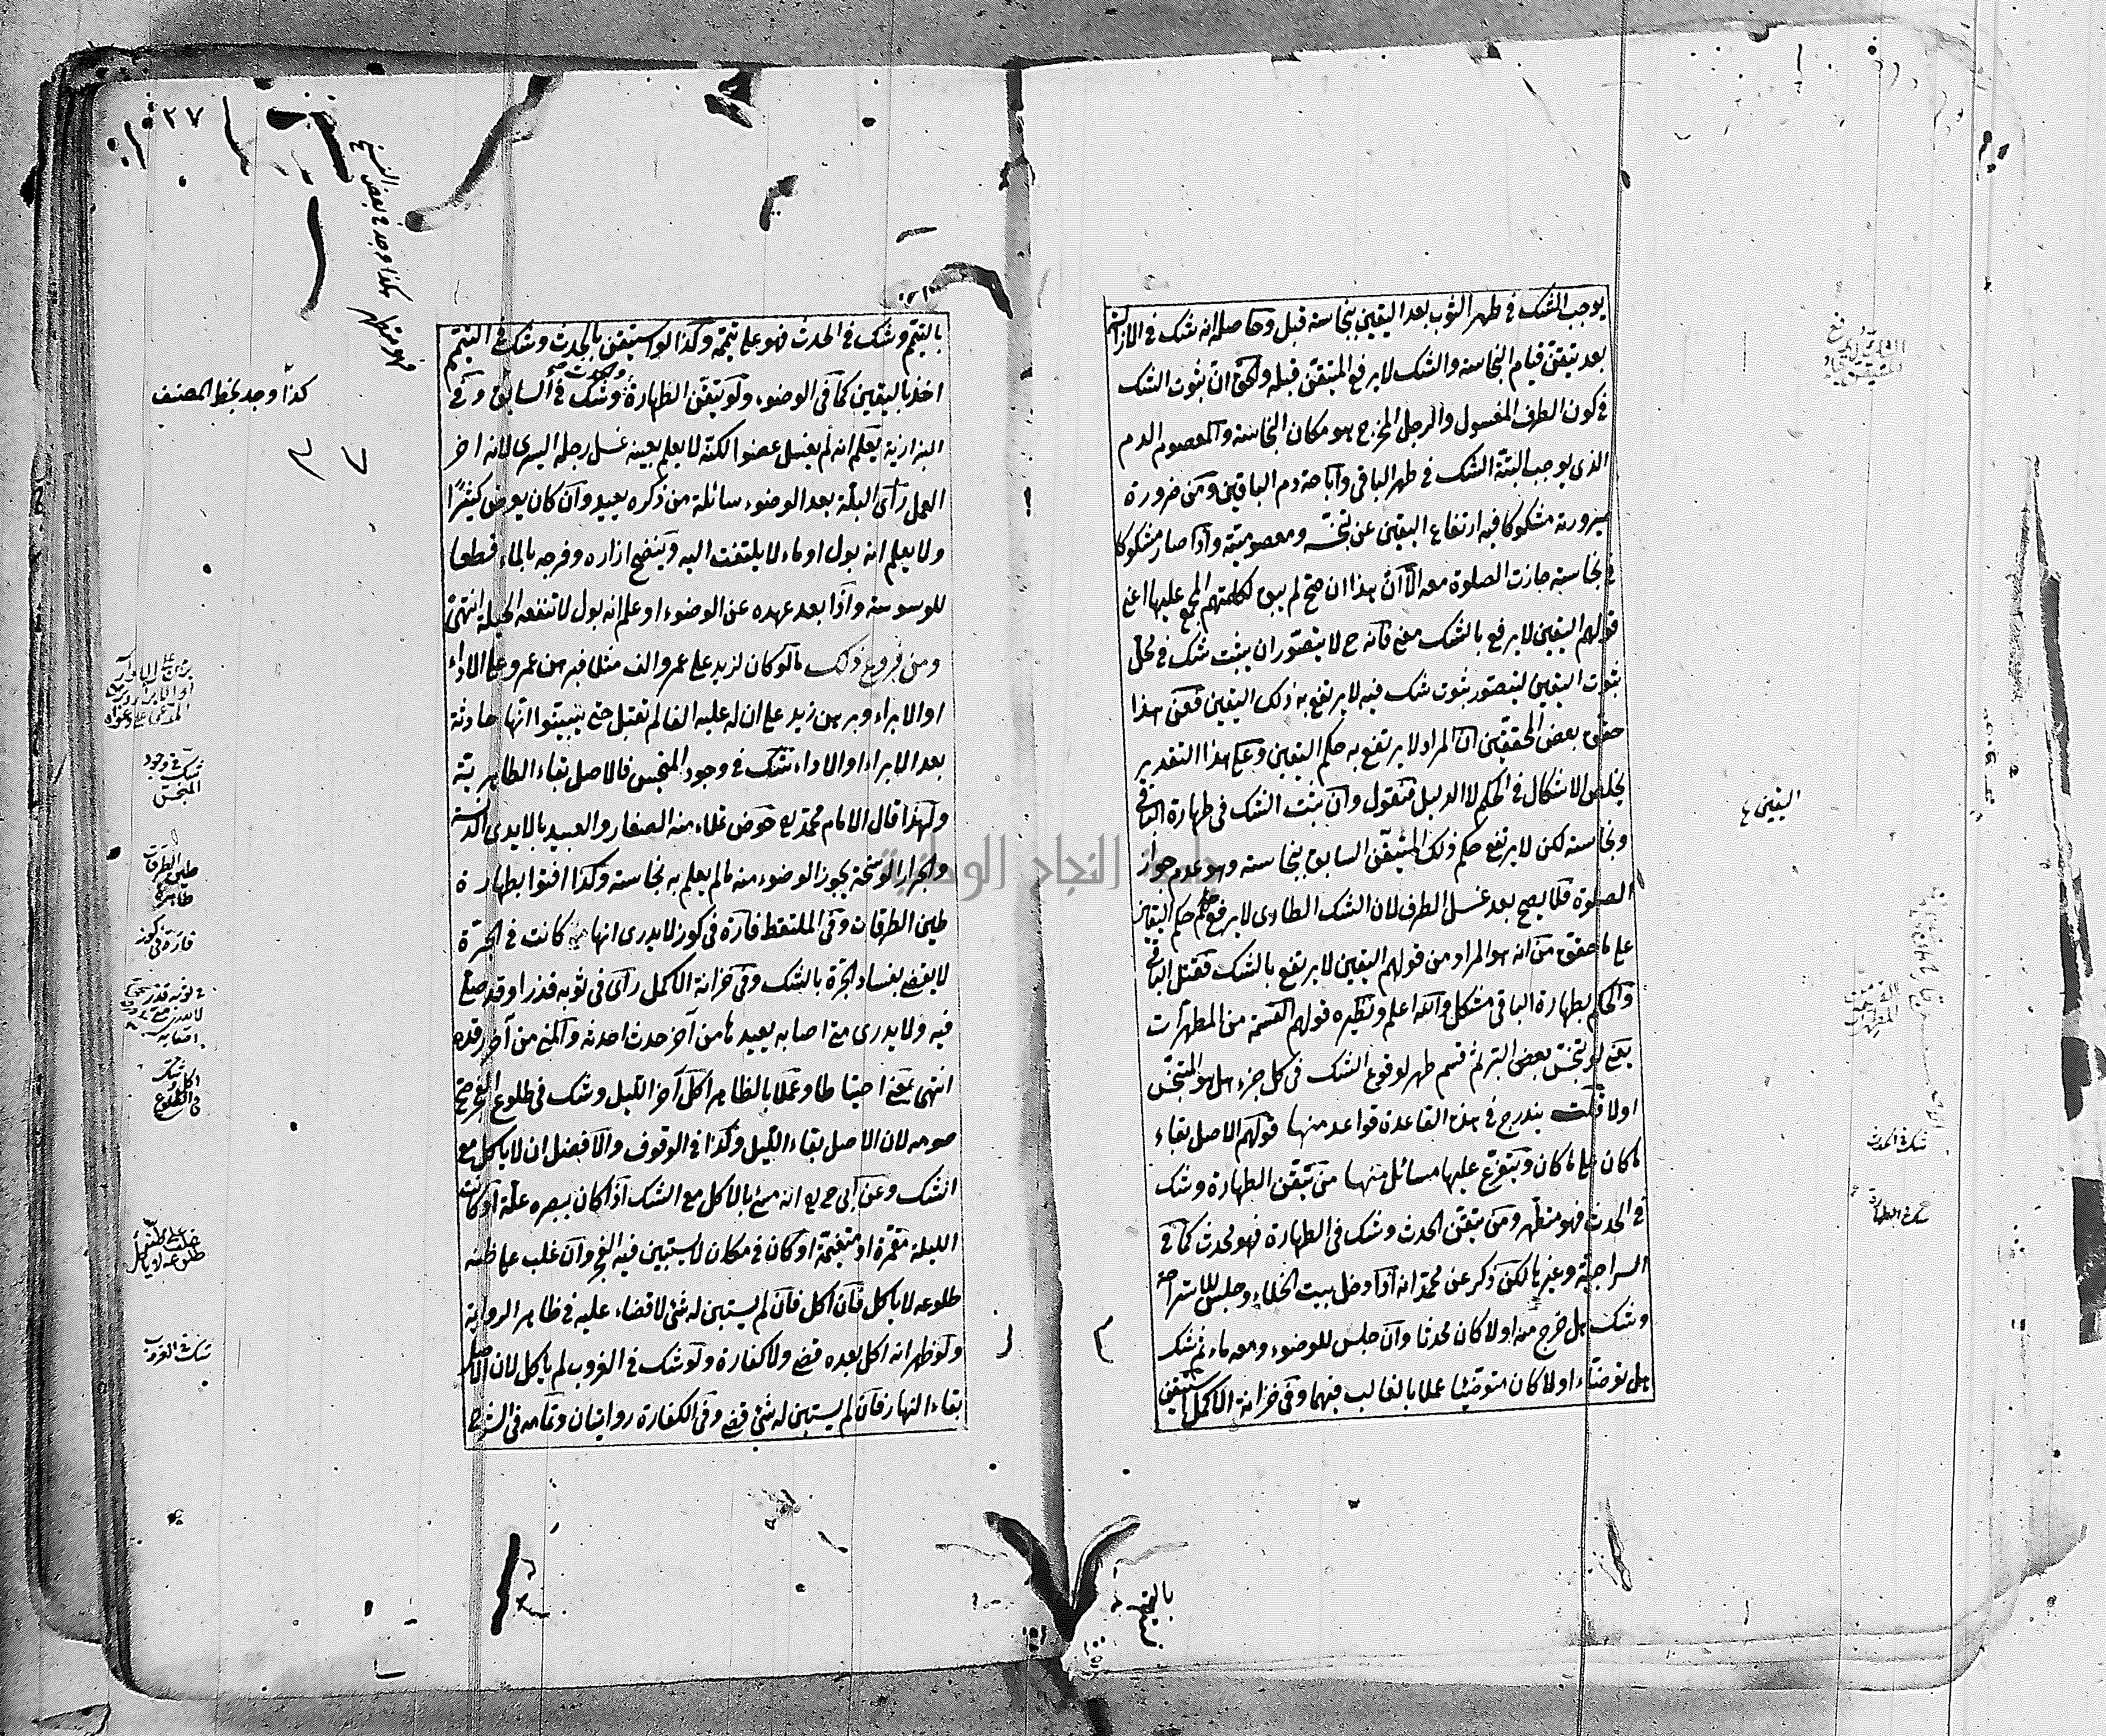 يوجب الشك في طهر الثوب بعد اليقين بنجاسته قبل وحاصله انه شك في الازالة
بعد تيقن قيام النجاسة والشك لا يرفع المتيقن قبله والحق ان ثبوت الشك
في كون الطرف المغسول والرجل المخرج هو مكان النجاسة والمعصوم الدم
الذي يوجب البتة الشك في طهر الباقي واباحة دم الباقين ومن ضرورة
صيرورته مشكوكا فيه ارتفاع اليقين عن تنجسه ومعصوميته واذا صار مشكوكا
في نجاسته جازت الصلوة معه الا ان هذا ان صح لم يبق لكلمتهم المجمع عليها اعني
قولهم اليقين لا يرفع بالشك معنى فانه ح لا يتصور ان يثبت شك في محل
ثبوت اليقين ليتصور ثبوت شك فيه لا يرتفع به ذلك اليقين فمعنى هذا
حقق بعض المحققين ان المراد لا يرتفع به حكم اليقين وعلى هذا التقدير
يخلص الاشكال في الحكم لا الدليل فنقول وان ثبت الشك في طهارة الباقي
ونجاسته لكن لا يرتفع حكم ذلك المتيقن السابق بنجاسته وهو عدم جواز
الصلوة فلا يصح بعد غسل الطرف لان الشك الطاري لا يرفع حكم اليقين
على ما حقق من انه هو المراد من قولهم اليقين لا يرتفع بالشك فقتل الباقي
والحكم بطهارة الباقي مشكل والله اعلم ونظيره قولهم القسمة من المطهرات
يعني لو تنجس بعض البر ثم قسم طهر لوقوع الشك في كل جزء هل هو المتنجس
اولا قلت يندرج في هذه القاعدة قواعد منها قولهم الاصل بقاء
ما كان على ما كان ويتفرع عليها مسائل منها من تيقن الطهارة وشك
في الحدث فهو متطهر ومن تيقن الحدث وشك في الطهارة فهو محدث كما في
السراجية وغيرها لكن ذكر عن محمد انه اذا دخل بيت الخلاء وجلس للاستراحة
وشك هل خرج منه اولا كان محدثا وان جلس للوضوء ومعه ماء ثم شك
هل توضأ اولا كان متوضئا عملا بالغالب فيهما وفي خزانة الاكمل استيقن
اليقين
شك في الحدث
شك في الطهارة
بالتيمم
٢٧
بالتيمم وشك في الحدث فهو على تيممه وكذا لو استيقن بالحدث وشك في التيمم
اخذ باليقين كما في الوضوء ولو تيقن الطهارة والحدث وشك في السابق وفي
البزازية يعلم انه لم يغسل عضوا لكنه لا يعلم بعينه غسل رجله اليسرى لانه اخر
العمل رأى البلة بعد الوضوء سائلة من ذكره يعيد وان كان يعرض كثيرا
ولا يعلم انه بول او ماء لا يلتفت اليه وينضح ازاره وفرجه بالماء قطعا
للوسوسة واذا بعد عهده عن الوضوء او علم انه بول لا تنفعه الحيلة انتهى
ومن فروع ذلك ما لو كان لزيد على عمرو الف مثلا فبرهن عمرو على الاداء
او الابراء وبرهن زيد على ان له عليه الفا لم تقبل حتى يثبتوا انها حادثة
بعد الابراء او الاداء شك في وجود المنجس فالاصل بقاء الطاهرية
ولهذا قال الامام محمد يع حوض تملاء منه الصغار والعبيد بالايدي الدنسة
والجرار الوسخة يجوز الوضوء منه مالم يعلم به نجاسته وكذا افتوا بطهارة
طين الطرقات وفي الملتقط فارة في كوز لا يدرى انها كانت في الجرة
لا يقضى بفساد الجرة بالشك وفي خزانة الاكمل رأى في ثوبه قذرا وقد صلى
فيه ولا يدري متى اصابه يعيدها من آخر حدث احدثه والمني من آخر رقدة
انتهى يعني احتياطا وعملا بالظاهر اكل آخر الليل وشك في طلوع الفجر صح
صومه لان الاصل بقاء الليل وكذا في الوقوف والافضل ان لا ياكل مع
الشك وعن ابي ح يع انه مسئ بالاكل مع الشك اذا كان ببصره علة او كانت
الليلة مقمرة او متغيمة او كان في مكان لا يستبين فيه الفجر وان غلب على ظنه
طلوعه لا ياكل فان اكل فان لم يستبن له شئ لا قضاء عليه في ظاهر الرواية
ولو ظهر انه اكل بعده قضى ولا كفارة ولو شك في الغروب لم ياكل لان الاصل
بقاء النهار فان لم يستبن له شئ قضى وفي الكفارة روايتان وتمامه في الشرح
فهو متطهر هكذا وجد في بعض النسخ
كذا وجد بخط المصنف
شك في وجود
المنجس
طين الطرقات
طاهرة
فارة في كوز
اكل شك
في الطلوع
غلب على ظنه
طلوعه لا ياكل
شك في الغروب
جامعة النجاح الوطنية